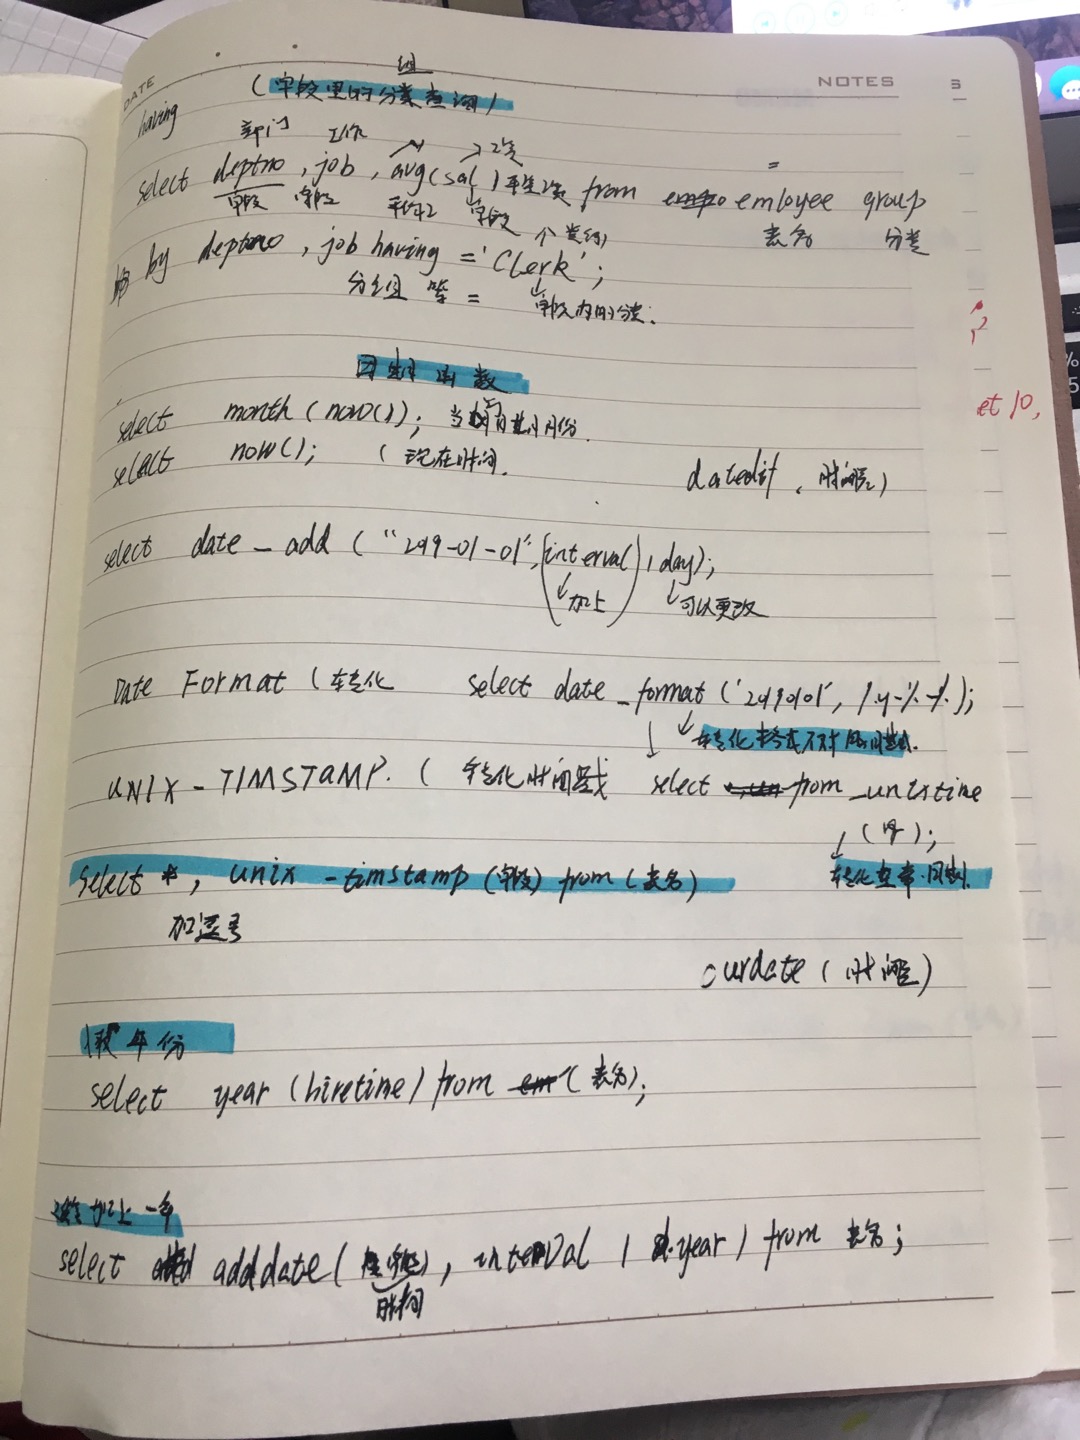 DATE
NOTES
组
having (字段里的分类查询)
部门 工作 工资
select deptno , job , avg(sal) 平均工资 from emloyee group
字段 字段 平均 字段 表名 分类
by deptno , job having = 'Clerk' ;
分组 等 = 字段内的分类.
日期函数
select month (now()); 当前月份.
select now(); (现在时间.
datedif , 时间
select date_add ("2019-01-01", (interval) 1 day);
加上 可以更改
Date Format (转化 select date_format ('20190101', %y-%-%);
转化格式
UNIX_TIMSTAMP. ( 转化时间戳 select from_unixtime
( );
select *, unix_timstamp (字段) from (表名)
加逗号
curdate ( 时间)
取年份
select year (hiretime) from (表名);
加上一年
select adddate ( 字段), interval 1 year) from 表名;
时间
et 10,